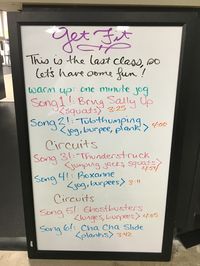 Get Fit
This is the last class, so
let's have some fun!
warm up: one minute jog
Song 1!: Bring Sally Up
<squats> 3:25
Song 2!: Tubthumping
<jog, burpee, plank> 4:00
Circuits
Song 3!: Thunderstruck
<jumping jacks, squats>
4:54
Song 4!: Roxanne
<jog, burpees> 3:11
Circuits
Song 5! Ghostbusters
<lunges, burpees> 4:05
Song 6!: Cha Cha Slide
<planks> 3:42